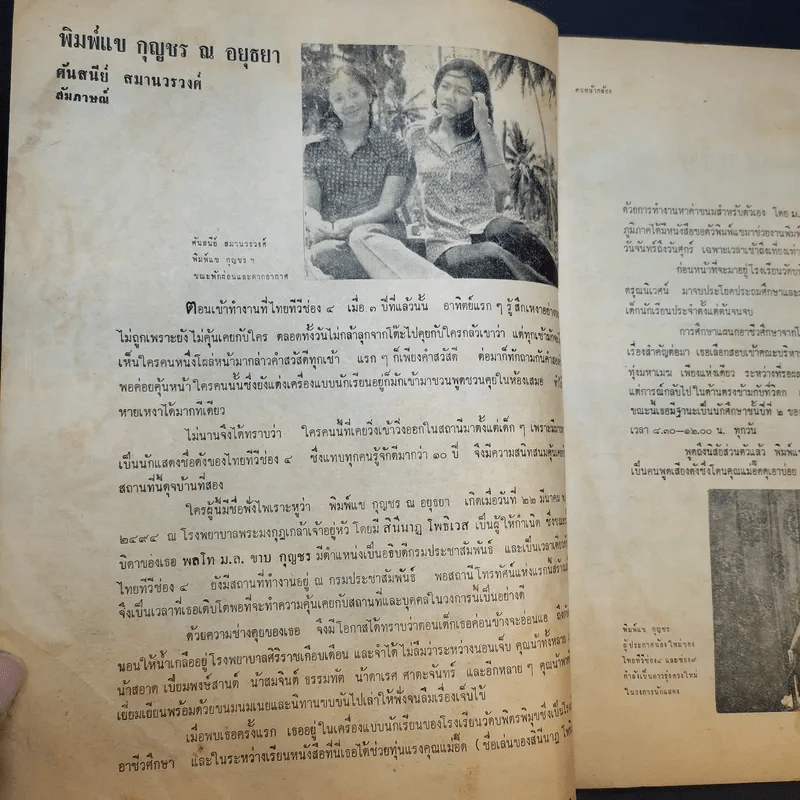 พิมพ์แข กุญชร ณ อยุธยา
ศันสนีย์ สมานวรวงศ์
สัมภาษณ์
ศันสนีย์ สมานวรวงศ์
พิมพ์แข กุญชร ฯ
ขณะพักผ่อนและตากอากาศ
ตอนเข้าทำงานที่ไทยทีวีช่อง ๔ เมื่อ ๓ ปีที่แล้วนั้น อาทิตย์แรก ๆ รู้สึกเหงาอย่าง
ไม่ถูกเพราะยังไม่คุ้นเคยกับใคร ตลอดทั้งวันไม่กล้าลุกจากโต๊ะไปคุยกับใครกลัวเขาว่า แต่ทุกเช้ามัก
เห็นใครคนหนึ่งโผล่หน้ามากล่าวคำสวัสดีทุกเช้า แรก ๆ ก็เพียงคำสวัสดี ต่อมาก็ทักถามกันคำสอง
พอค่อยคุ้นหน้า ใครคนนั้นซึ่งยังแต่งเครื่องแบบนักเรียนอยู่ก็มักเข้ามาชวนพูดชวนคุยในห้องเสมอ
หายเหงาได้มากทีเดียว
ไม่นานจึงได้ทราบว่า ใครคนนี้ที่เคยวิ่งเข้าวิ่งออกในสถานีมาตั้งแต่เด็ก ๆ เพราะมีมารดา
เป็นนักแสดงชื่อดังของไทยทีวีช่อง ๔ ซึ่งแทบทุกคนรู้จักดีมากว่า ๑๐ ปี จึงมีความสนิทสนมคุ้นเคย
สถานที่นี้ดุจบ้านที่สอง
ใครผู้นี้มีชื่อฟังไพเราะหูว่า พิมพ์แข กุญชร ณ อยุธยา เกิดเมื่อวันที่ ๒๒ มีนาคม
๒๔๙๔ ณ โรงพยาบาลพระมงกุฎเกล้าเจ้าอยู่หัว โดยมี สินีนาฎ โพธิเวส เป็นผู้ให้กำเนิด ซึ่งขณะ
บิดาของเธอ พลโท ม.ล. ขาบ กุญชร มีตำแหน่งเป็นอธิบดีกรมประชาสัมพันธ์ และเป็นเวลาเดียว
ไทยทีวีช่อง ๔ ยังมีสถานที่ทำงานอยู่ ณ กรมประชาสัมพันธ์ พอสถานีโทรทัศน์แห่งแรกนี้สร้าง
จึงเป็นเวลาที่เธอเติบโตพอที่จะทำความคุ้นเคยกับสถานที่และบุคคลในวงการนี้เป็นอย่างดี
ด้วยความช่างคุยของเธอ จึงมีโอกาสได้ทราบว่าตอนเด็กเธอค่อนข้างจะอ่อนแอ ถึงกับ
นอนให้น้ำเกลืออยู่โรงพยาบาลศิริราชเกือบเดือน และจำได้ไม่ลืมว่าระหว่างนอนเจ็บ คุณน้าทั้งหลาย
น้าสอาด เปี่ยมพงษ์สานต์ น้าสมจินต์ ธรรมทัต น้าดาเรศ ศาตะจันทร์ และอีกหลาย ๆ คุณน้า
เยี่ยมเยียนพร้อมด้วยขนมนมเนยและนิทานขบขันไปเล่าให้ฟังจนลืมเรื่องเจ็บไข้
เมื่อพบเธอครั้งแรก เธออยู่ในเครื่องแบบนักเรียนของโรงเรียนวัดบพิตรพิมุขซึ่งเป็นโรงเรียน
อาชีวศึกษา และในระหว่างเรียนหนังสือที่นี่เธอได้ช่วยทุ่นแรงคุณแม่อี๊ด ( ชื่อเล่นของสินีนาฎ
คนหน้ากล้อง
ด้วยการทำงานหาค่าขนมสำหรับตัวเอง โดย ม.
ภูมิภาคได้มีหนังสือขอตัวพิมพ์แขมาช่วยงานพิมพ์
วันจันทร์ถึงวันศุกร์ เฉพาะเวลาเช้าถึงเที่ยงเท่า
ก่อนหน้าที่จะมาอยู่โรงเรียนวัด
ดรุณนิเวศน์ มาจบประโยคประถมศึกษาและ
เด็กนักเรียนประจำตั้งแต่ต้นจนจบ
การศึกษาแผนกอาชีวศึกษาจาก
เรื่องสำคัญต่อมา เธอเลือกสอบเข้าคณะบริหาร
ทุ่งมหาเมฆ เพียงแห่งเดียว ระหว่างที่รอผล
แต่การณ์กลับไปในด้านตรงข้ามกับที่วิตก
ขณะนี้เธอมีฐานะเป็นนักศึกษาชั้นปีที่ ๒ ของ
เวลา ๔.๓๐–๑๒.๐๐ น. ทุกวัน
พูดถึงนิสัยส่วนตัวแล้ว พิมพ์แข
เป็นคนพูดเสียงดังซึ่งโดนคุณแม่อี๊ดดุเอาบ่อย
พิมพ์แข กุญชร
ผู้ประกาศน้องใหม่ของ
ไทยทีวีช่อง๔ และช่อง๙
กำลังเป็นดาวรุ่งดวงใหม่
ในวงการนักแสดง